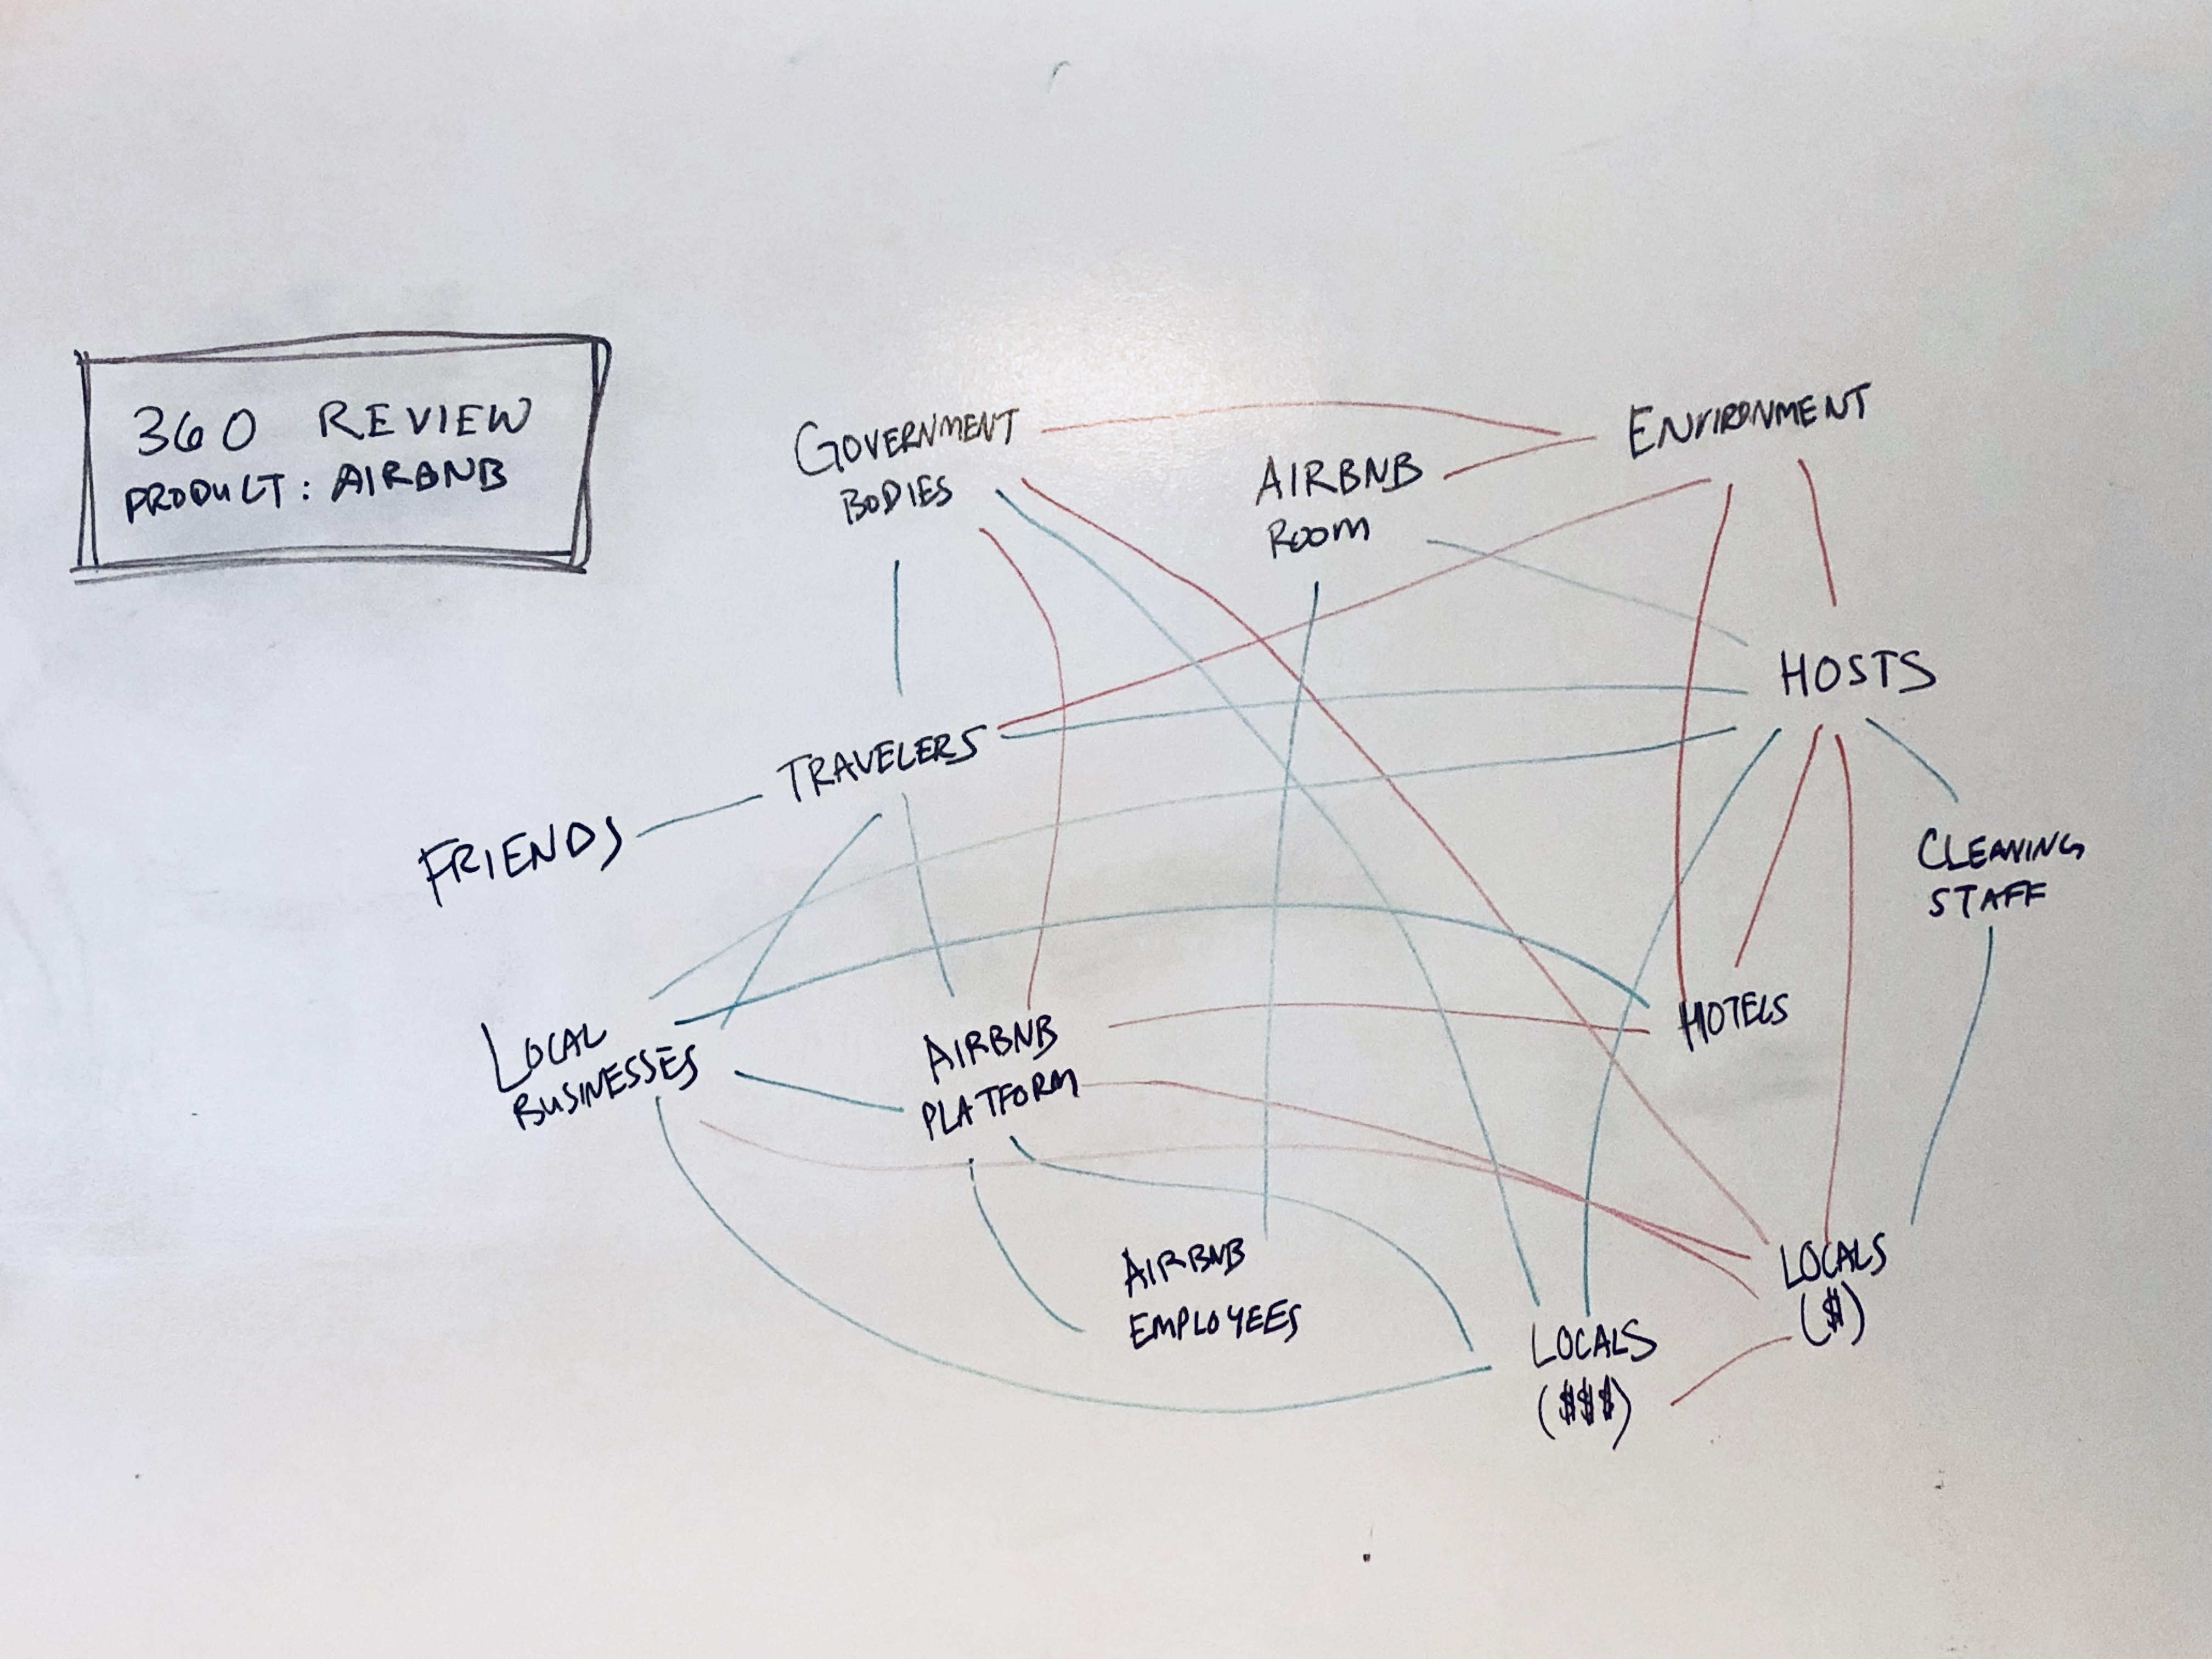 360 REVIEW
PRODUCT: AIRBNB
GOVERNMENT
BODIES
AIRBNB
ROOM
ENVIRONMENT
HOSTS
TRAVELERS
FRIENDS
CLEANING
STAFF
LOCAL
BUSINESSES
AIRBNB
PLATFORM
HOTELS
AIRBNB
EMPLOYEES
LOCALS
($$$)
LOCALS
($)